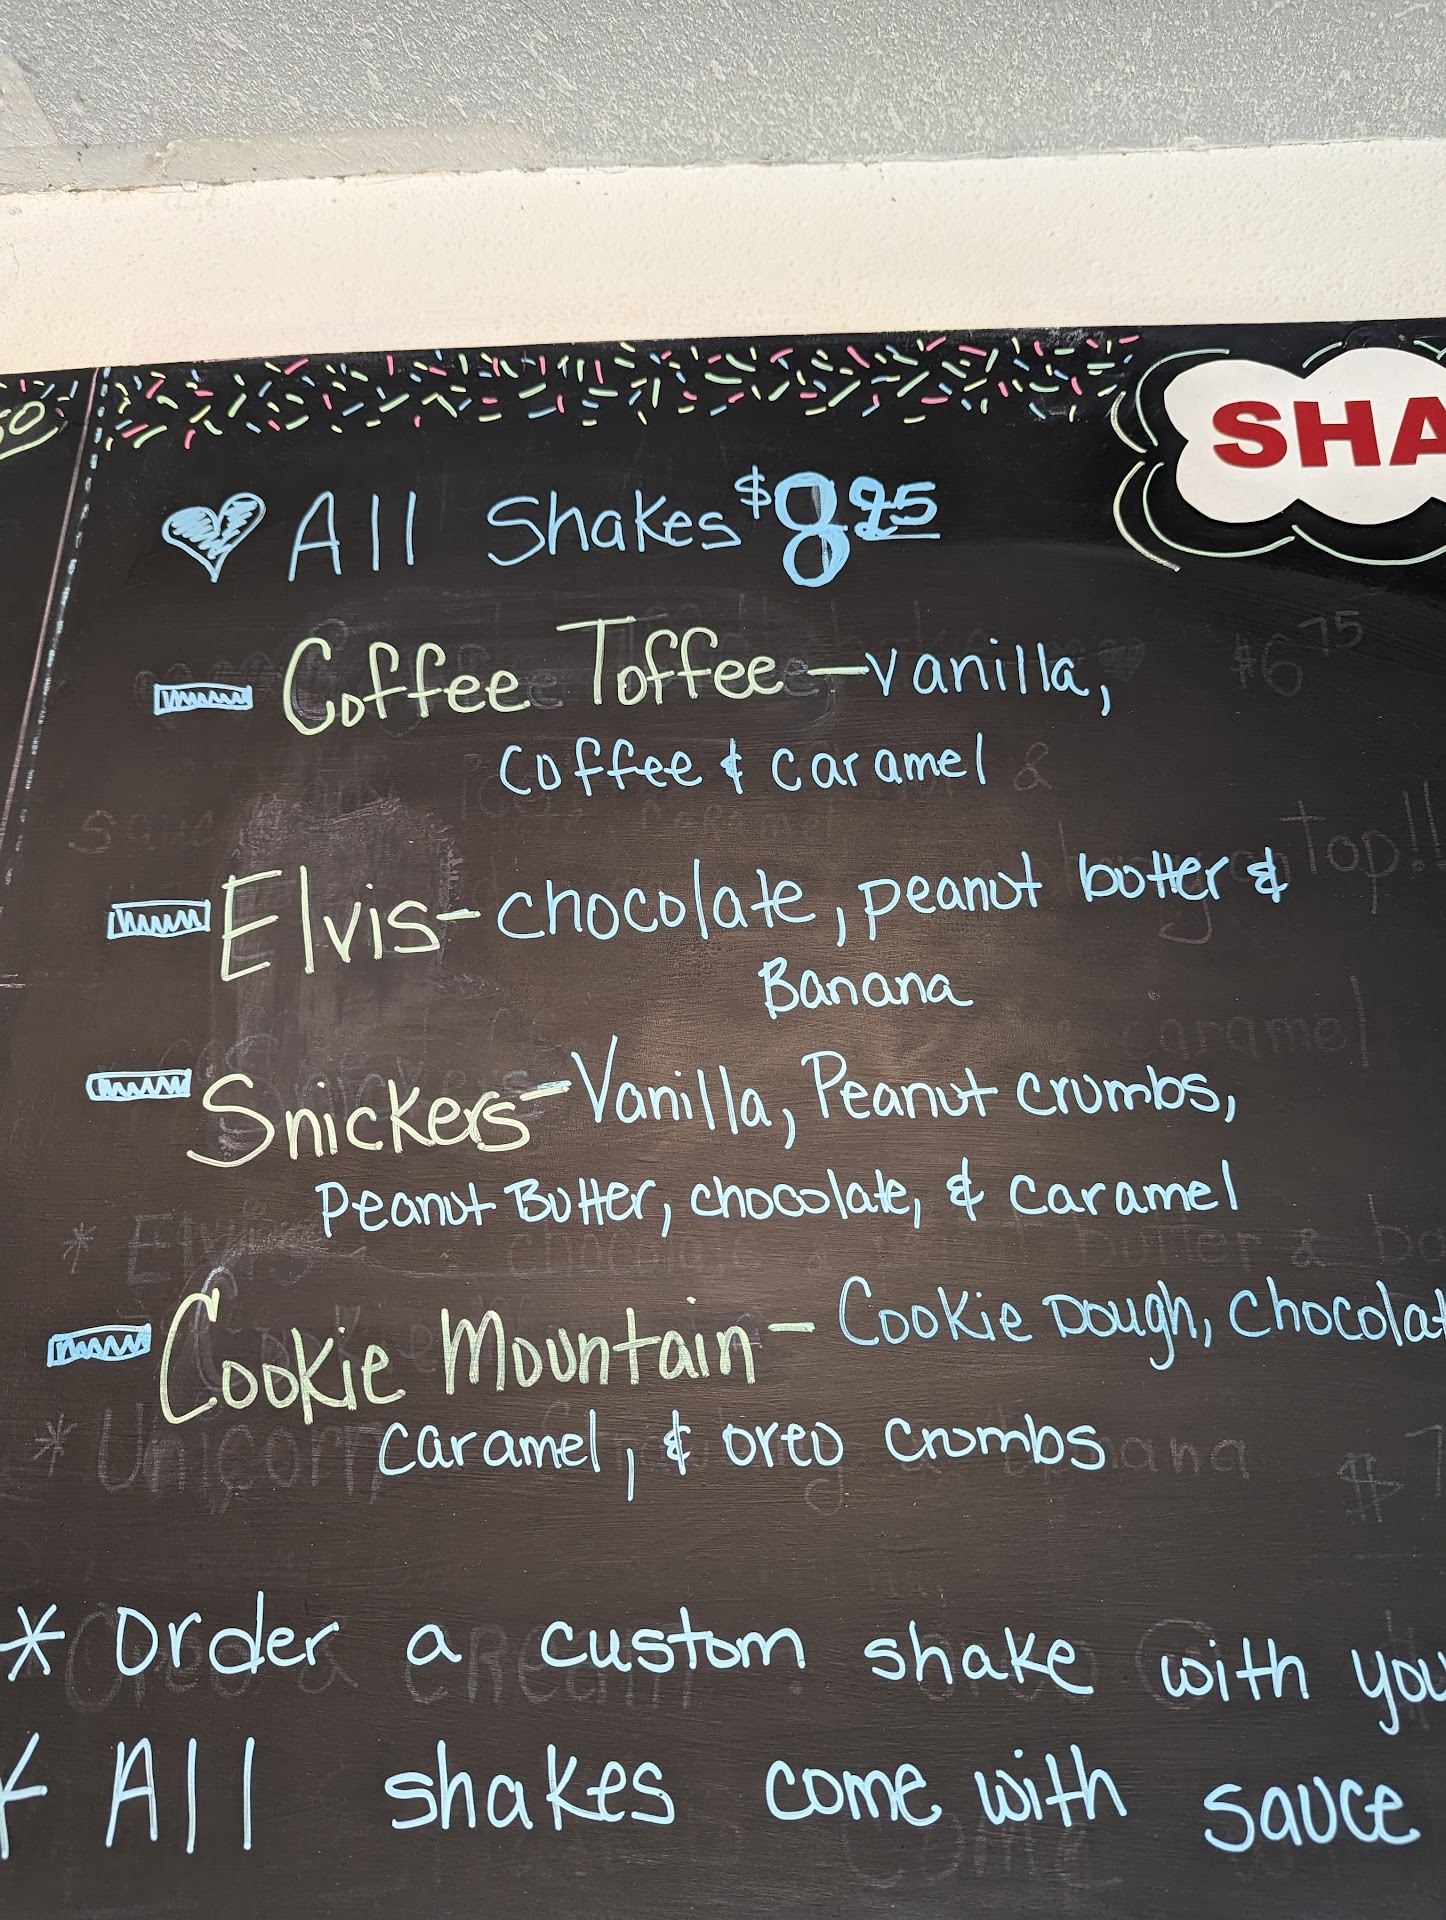 SHA
All Shakes $8.25
$6.75
Coffee Toffee - vanilla,
coffee & caramel
top!!
Elvis - chocolate, peanut butter &
Banana
caramel
Snickers - Vanilla, Peanut crumbs,
Peanut Butter, chocolate, & caramel
Cookie Mountain - Cookie Dough, chocolat
caramel, & oreo crumbs
* Unicorn
* Order a custom shake with you
* All shakes come with sauce